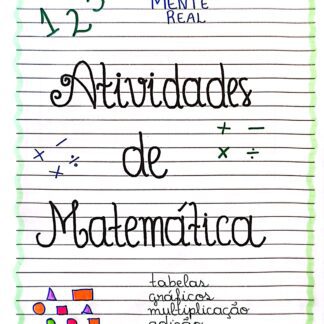 1 2 3
MENTE
REAL
Atividades
+ −
× ÷
× − + ÷
de
Matemática
tabelas
gráficos
multiplicação
adição